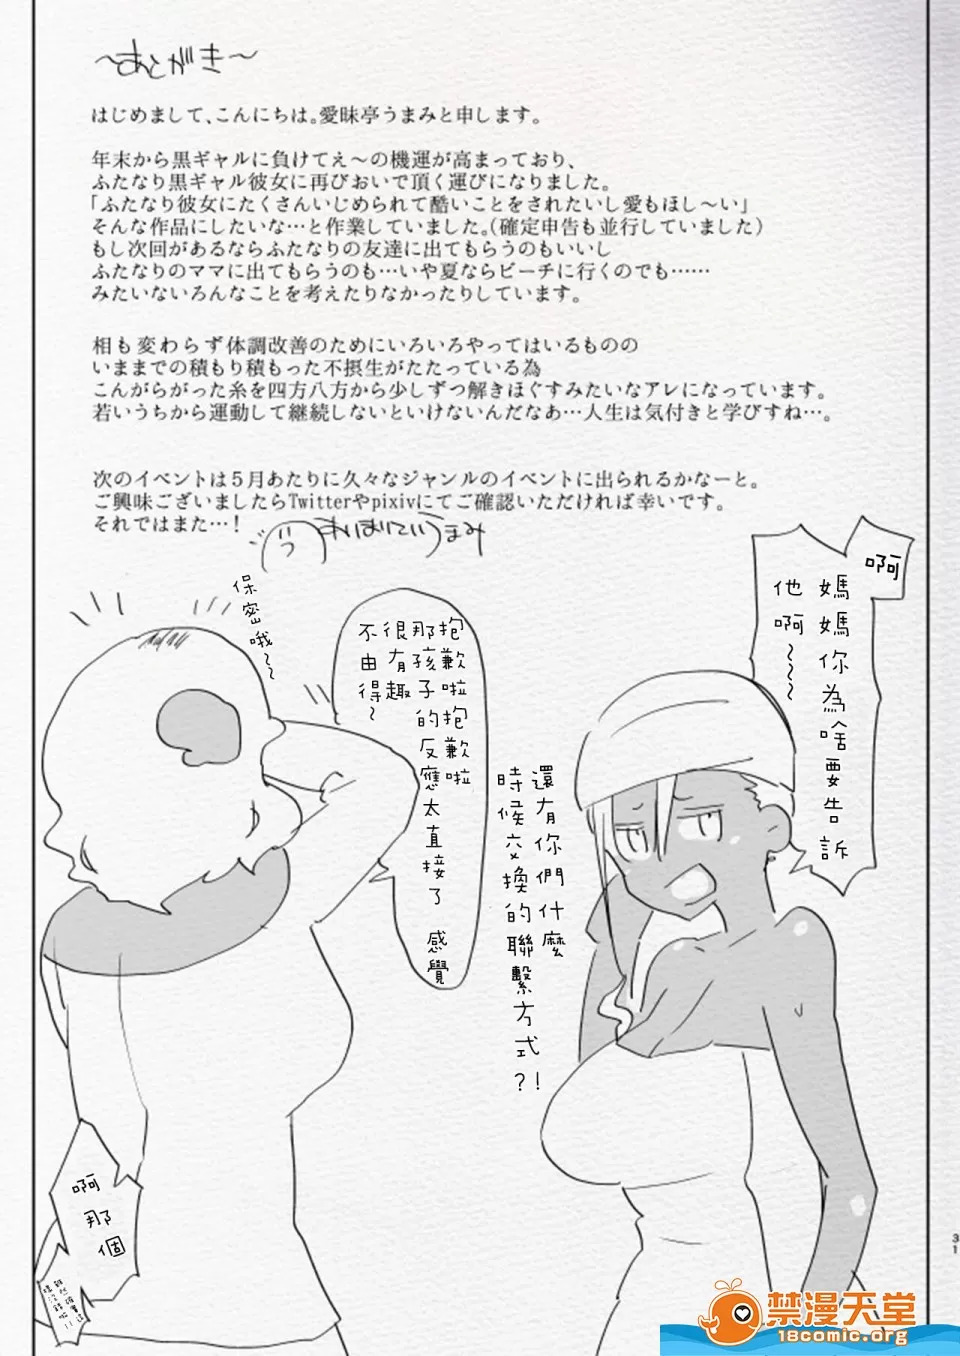 ～あとがき～
はじめまして、こんにちは。愛昧亭うまみと申します。
年末から黒ギャルに負けてえ～の機運が高まっており、
ふたなり黒ギャル彼女に再びおいで頂く運びになりました。
「ふたなり彼女にたくさんいじめられて酷いことをされたいし愛もほし～い」
そんな作品にしたいな…と作業していました。(確定申告も並行していました)
もし次回があるならふたなりの友達に出てもらうのもいいし
ふたなりのママに出てもらうのも…いや夏ならビーチに行くのでも……
みたいないろんなことを考えたりなかったりしています。
相も変わらず体調改善のためにいろいろやってはいるものの
いままでの積もり積もった不摂生がたたっている為
こんがらがった糸を四方八方から少しずつ解きほぐすみたいなアレになっています。
若いうちから運動して継続しないといけないんだなあ…人生は気付きと学びすね…。
次のイベントは5月あたりに久々なジャンルのイベントに出られるかなーと。
ご興味ございましたらTwitterやpixivにてご確認いただければ幸いです。
それではまた…!
あいまいていうまみ
啊
媽媽你為啥要告訴
他啊～～～
還有你們什麼
時候交換的聯繫方式?!
保密哦～～
抱歉啦抱歉啦
那孩子的反應太直接了 感覺
很有趣
不由得～
啊
那個
31
禁漫天堂
18comic.org